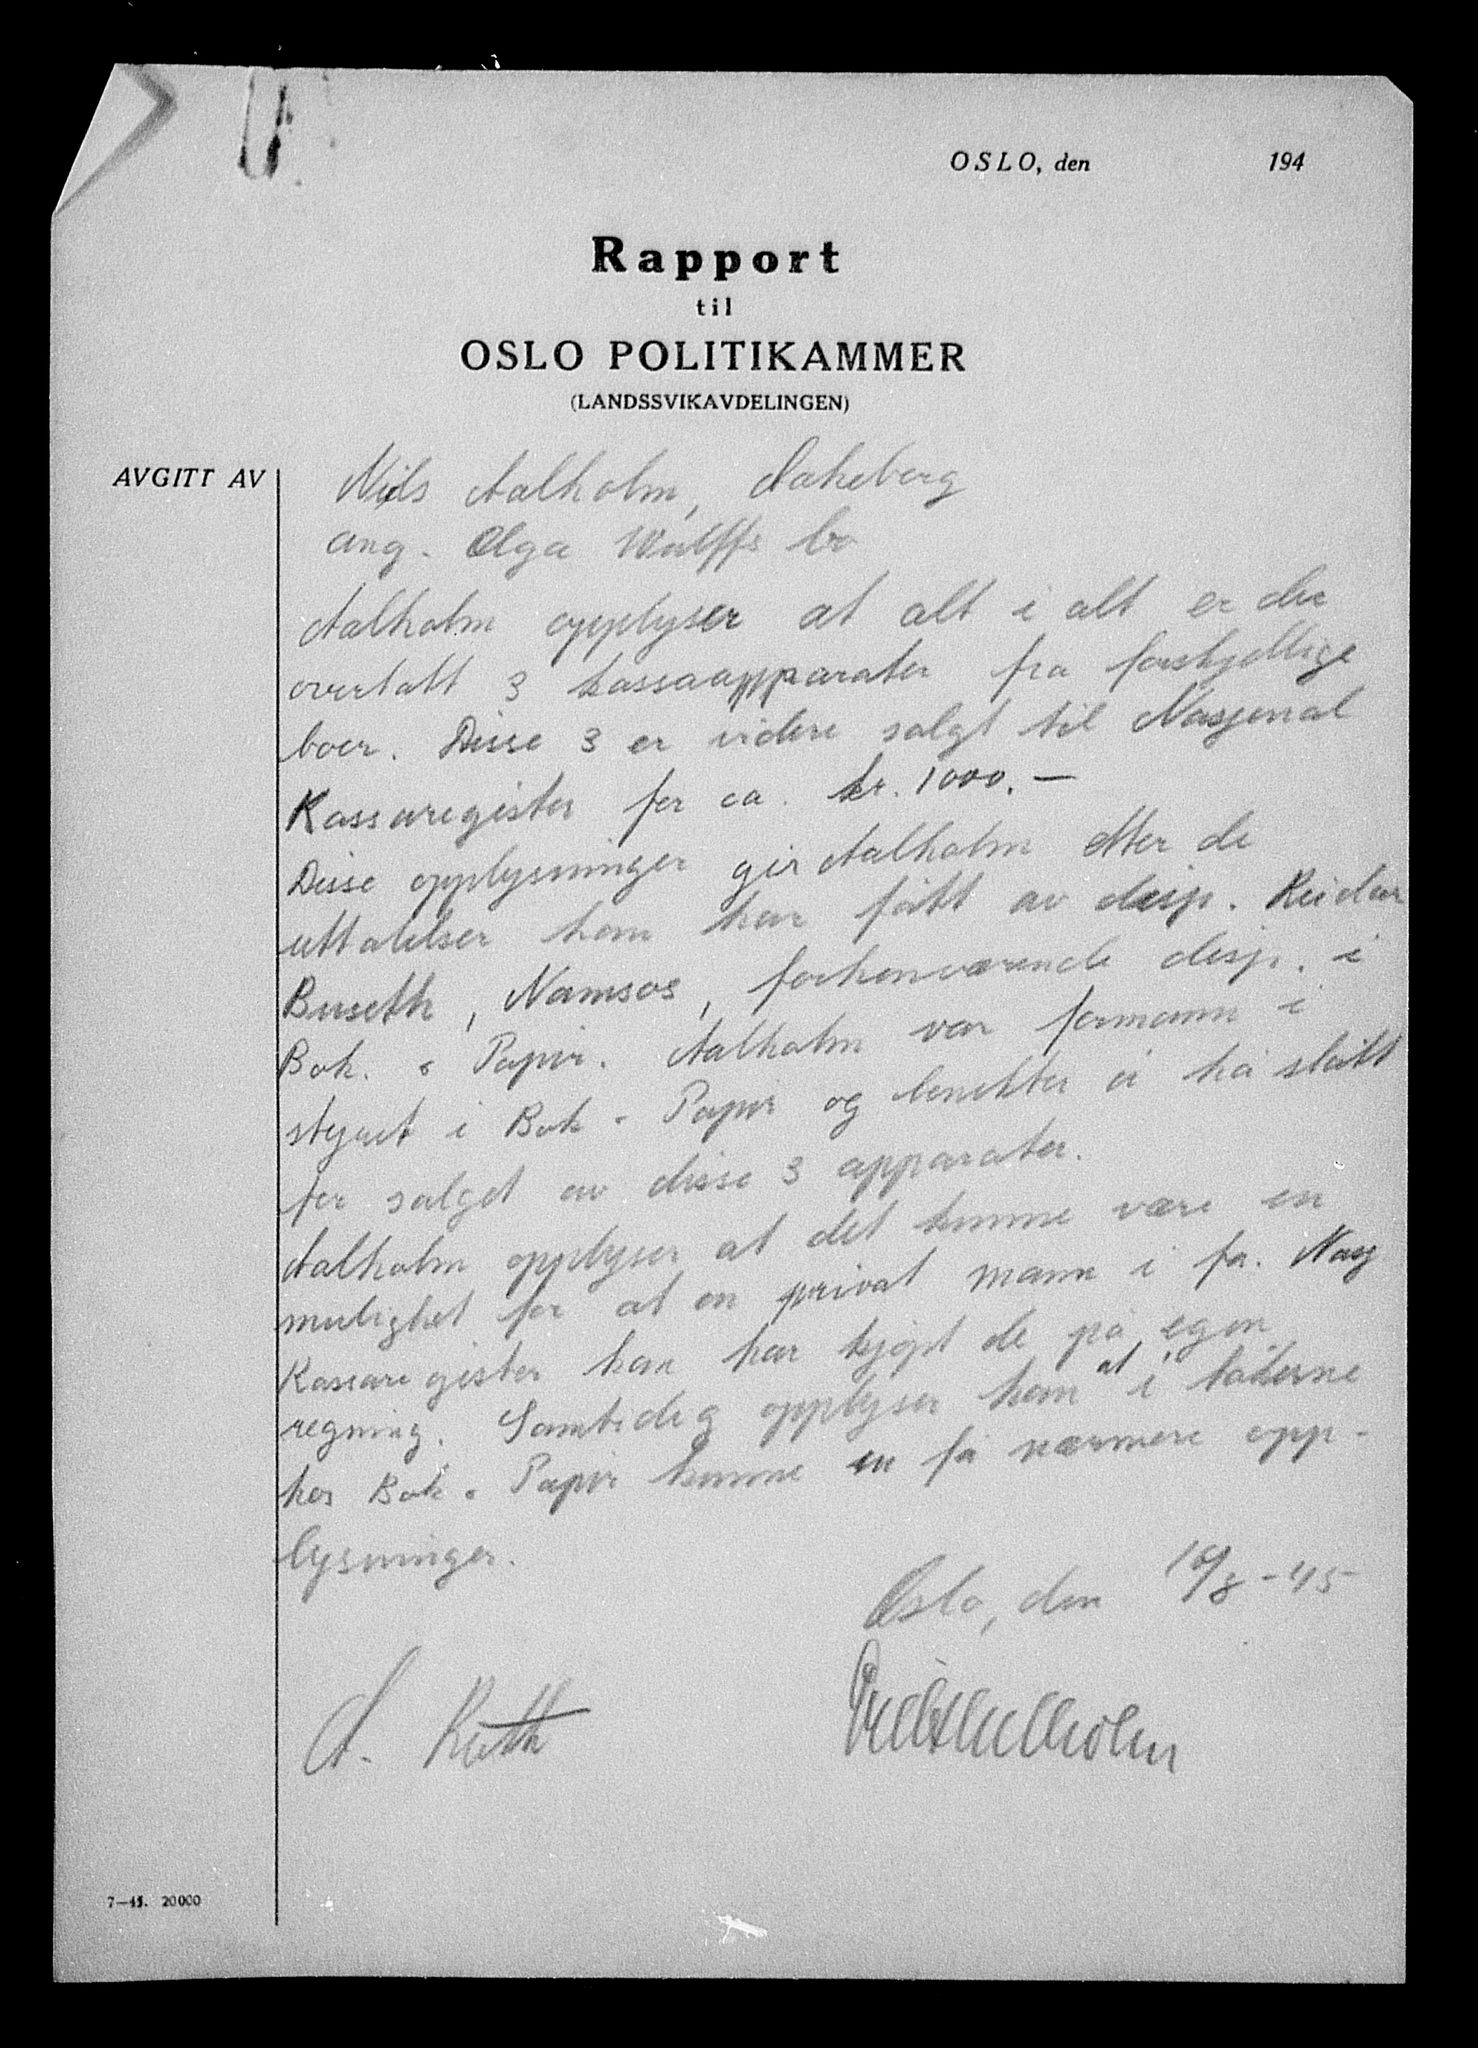 OSLO, den 194
Rapport
til
OSLO POLITIKAMMER
(LANDSSVIKAVDELINGEN)
AVGITT AV
Nils Aalholm,
ang. Olga Wulffs bo
Aalholm opplyser at alt i alt er der
overtatt 3 kassaapparater fra forskjellige
boer. Disse 3 er videre solgt til Nasjonal
Kassaregister for ca. kr. 1000.—
Disse opplysninger gir Aalholm etter de
uttalelser han har fått av disp. Reidar
Buseth, Namsos, forhenværende disp. i
Bok. & Papir. Aalholm var formann i
styret i Bok & Papir og benekter å ha stått
for salget av disse 3 apparater.
Aalholm opplyser at det kunne være en
mulighet for at en privat mann i fa. Nasj
Kassaregister har kjøpt de på egen
regning. Samtidig opplyser han at i bøkerne
hos Bok & Papir kunne en få nærmere opp-
lysninger.
Oslo, den 10/8-45
A.
7—45. 20000